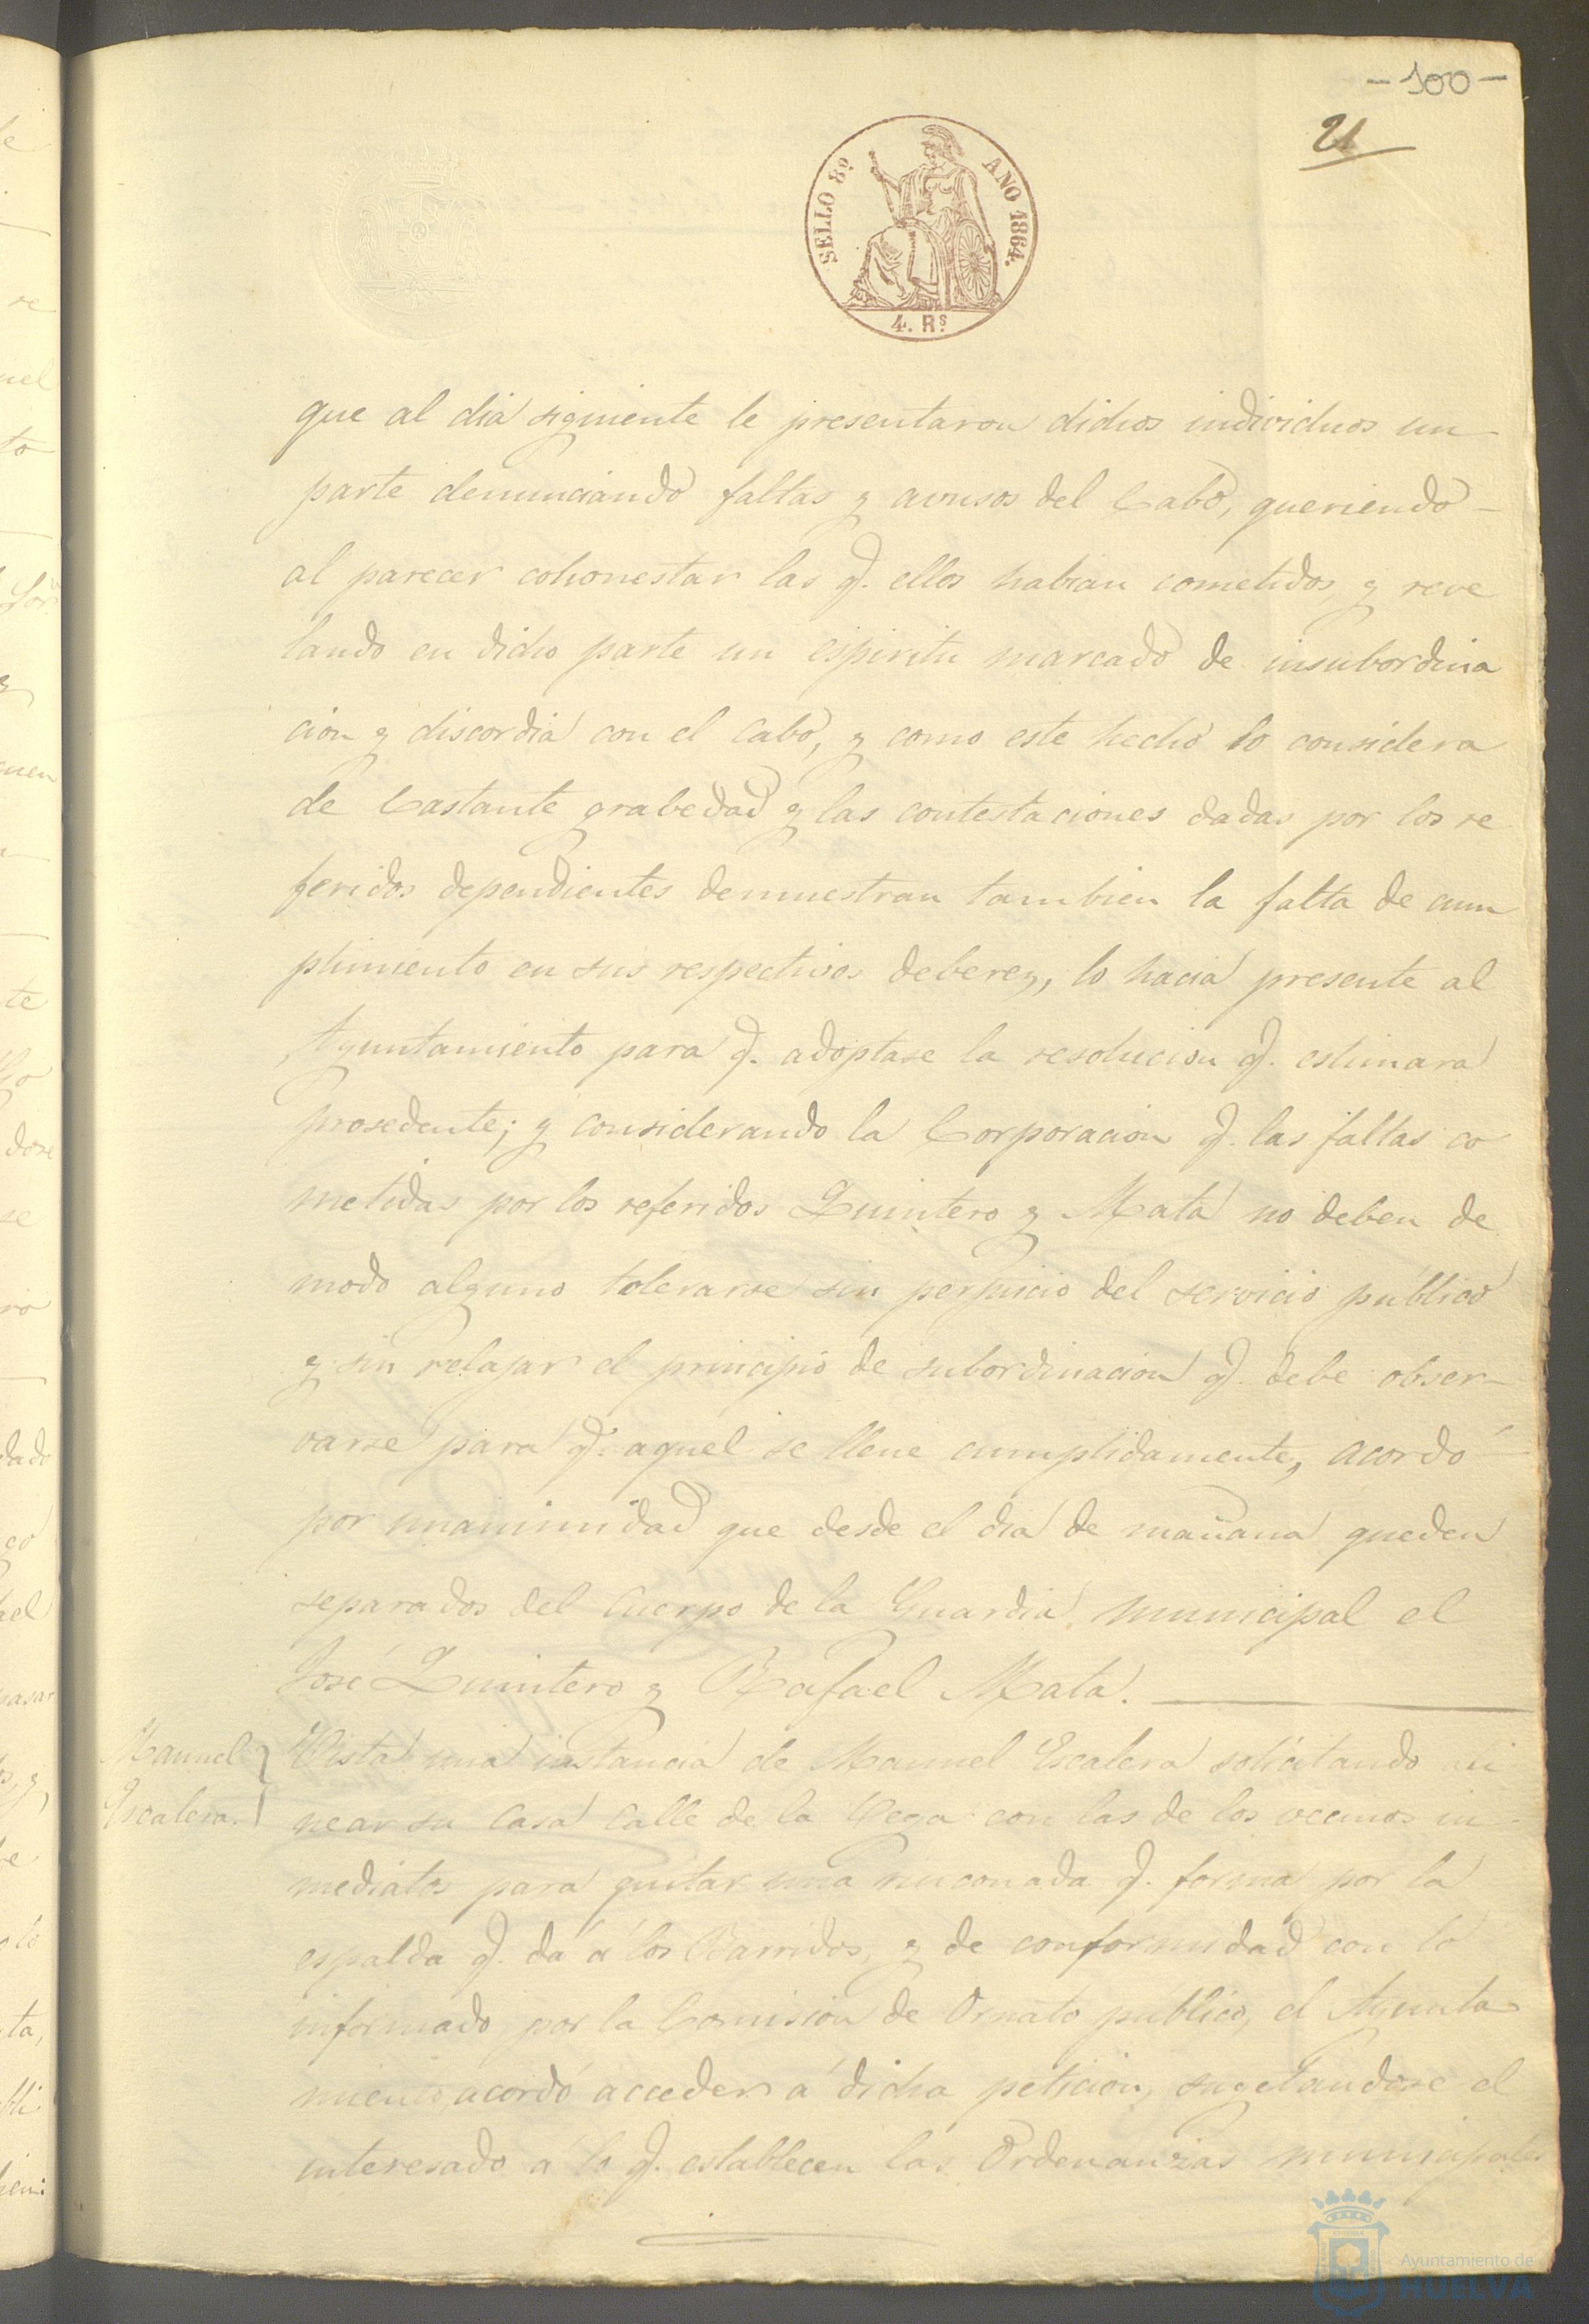 - 100 -
21
SELLO 8º AÑO 1864.
4. Rs
que al dia siguiente le presentaron dichos individuos un
parte denunciando faltas y avusos del Cabo, queriendo
al parecer cohonestar las q. ellos habian cometidos, y reve
lando en dicho parte un espiritu marcado de insubordina
cion y discordia con el Cabo, y como este hecho lo considera
de bastante grabedad y las contestaciones dadas por los re
feridos dependientes demuestran tambien la falta de cum
plimiento en sus respectivos deberez, lo hacia presente al
Ayuntamiento para q. adoptase la resolucion q. estimara
prosedente; y considerando la Corporacion q. las faltas co
metidas por los referidos Quintero y Mata no deben de
modo alguno tolerarse sin perjuicio del servicio público
y sin relajar el principio de subordinacion q. debe obser-
varse para q. aquel se llene cumplidamente, acordó
por unanimidad que desde el dia de mañana queden
separados del Cuerpo de la Guardia municipal el
José Quintero y Rafael Mata.
Manuel
Escalera.
Vista una instancia de Manuel Escalera solicitando
near su casa calle de la Vega con las de los vecinos in
mediatos para quitar una rinconada q. forma por la
espalda q. dá á los Barridos, y de conformidad con lo
informado por la Comision de Ornato público, el Ayunta
miento acordó acceder á dicha peticion, sugetandose el
interesado á lo q. establecen las Ordenanzas municipales
Ayuntamiento de
HUELVA